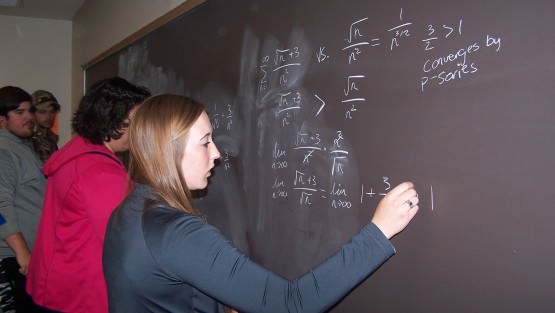 ∞ ∑ (√n+3)/n² vs. √n/n² = 1/n^(3/2) 3/2 > 1
converges by
p-series
(√n+3)/n² > √n/n²
lim n→∞ (√n+3)/n² · n²/√n
lim n→∞ (√n+3)/√n = lim n→∞ 1 + 3 1